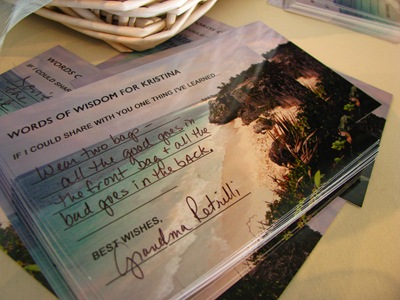 WORDS OF WISDOM FOR KRISTINA
IF I COULD SHARE WITH YOU ONE THING I'VE LEARNED...
Wear two bags
all the good goes in
the front bag & all the
bad goes in the back.
BEST WISHES,
Grandma Petrilli
WORDS C
IF I COULD SHAR